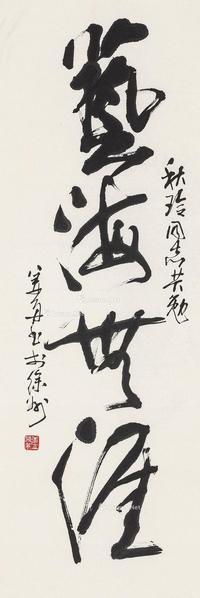 秋玲同志共勉
藝海無涯
姜舟书于徐州